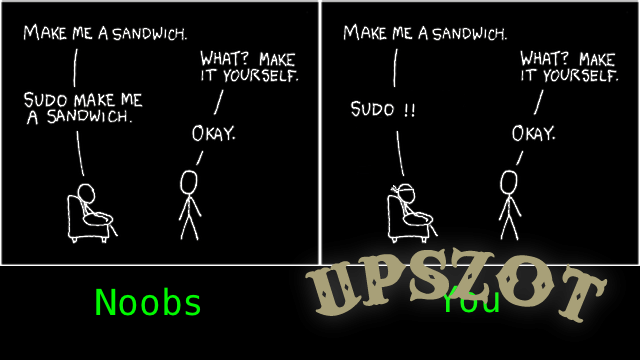 MAKE ME A SANDWICH.
WHAT? MAKE
IT YOURSELF.
SUDO MAKE ME
A SANDWICH.
OKAY.
MAKE ME A SANDWICH.
WHAT? MAKE
IT YOURSELF.
SUDO !!
OKAY.
Noobs
You
UPSZOT